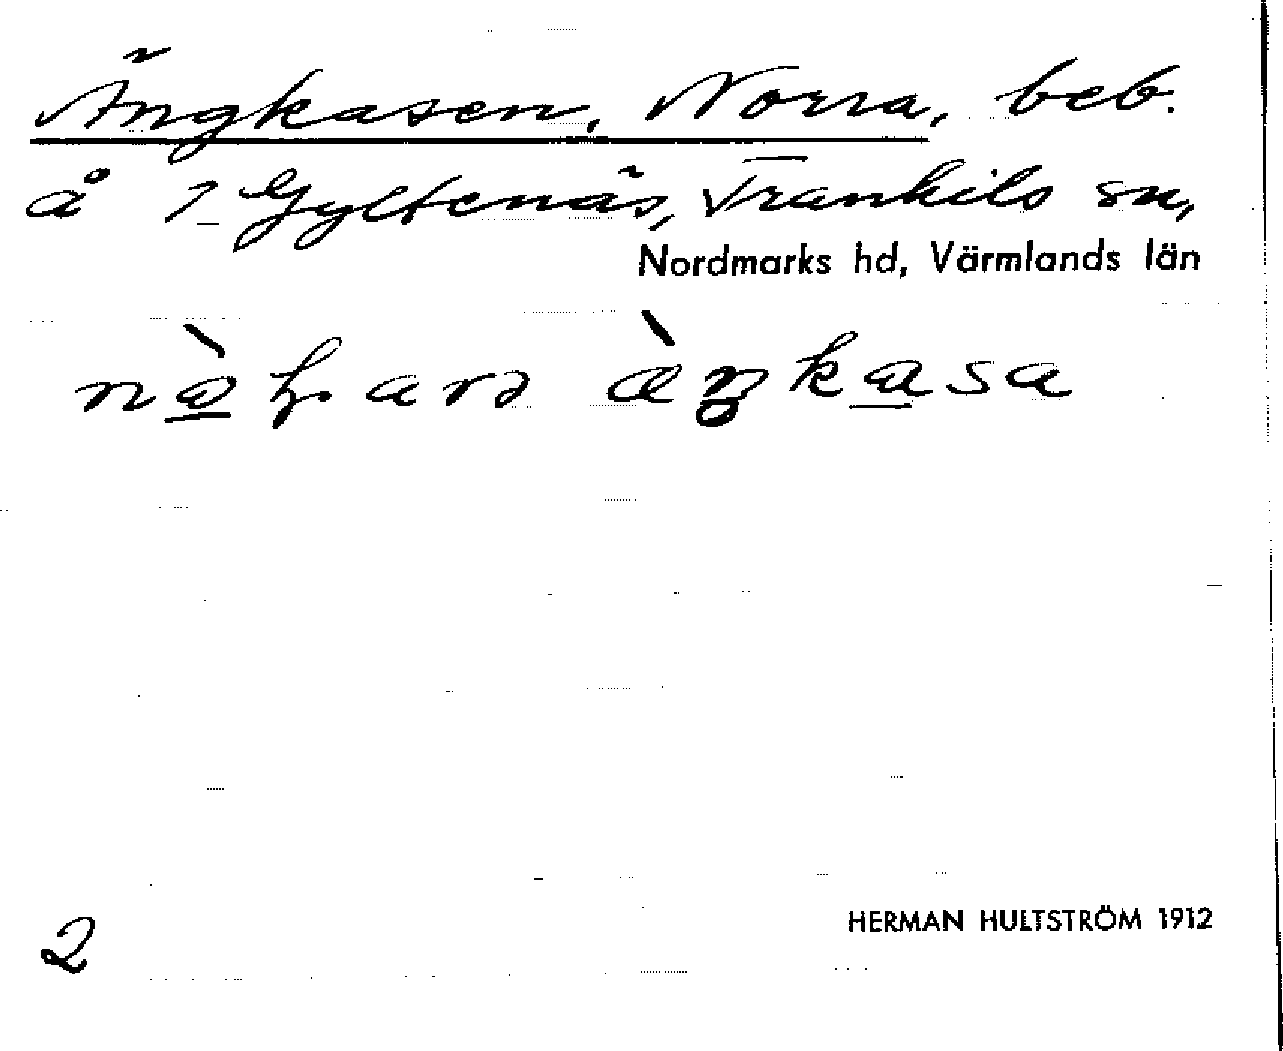 Ängkasen, Norra, beb.
å 1 Gyltenäs, Trankils sn,
Nordmarks hd, Värmlands län
2
HERMAN HULTSTRÖM 1912